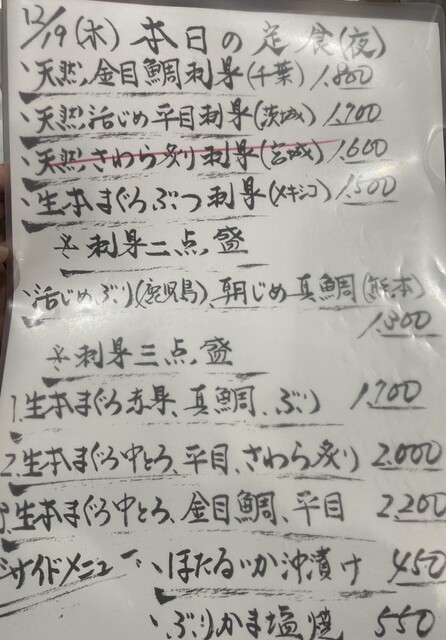 12/19(木) 本日の定食(夜)
、天然金目鯛刺身(千葉) 1,800
、天然活じめ平目刺身(茨城) 1,700
、天然さわら炙り刺身(宮城) 1,600
、生本まぐろぶつ刺身(メキシコ) 1,500
※刺身二点盛
、活じめぶり(鹿児島)、朝じめ真鯛(熊本)
1,800
※刺身三点盛
1.生本まぐろ赤身、真鯛、ぶり 1,700
2.生本まぐろ中とろ、平目、さわら炙り 2,000
3.生本まぐろ中とろ、金目鯛、平目 2,200
サイドメニュー 、ほたるいか沖漬け 450
、ぶりかま塩焼 550